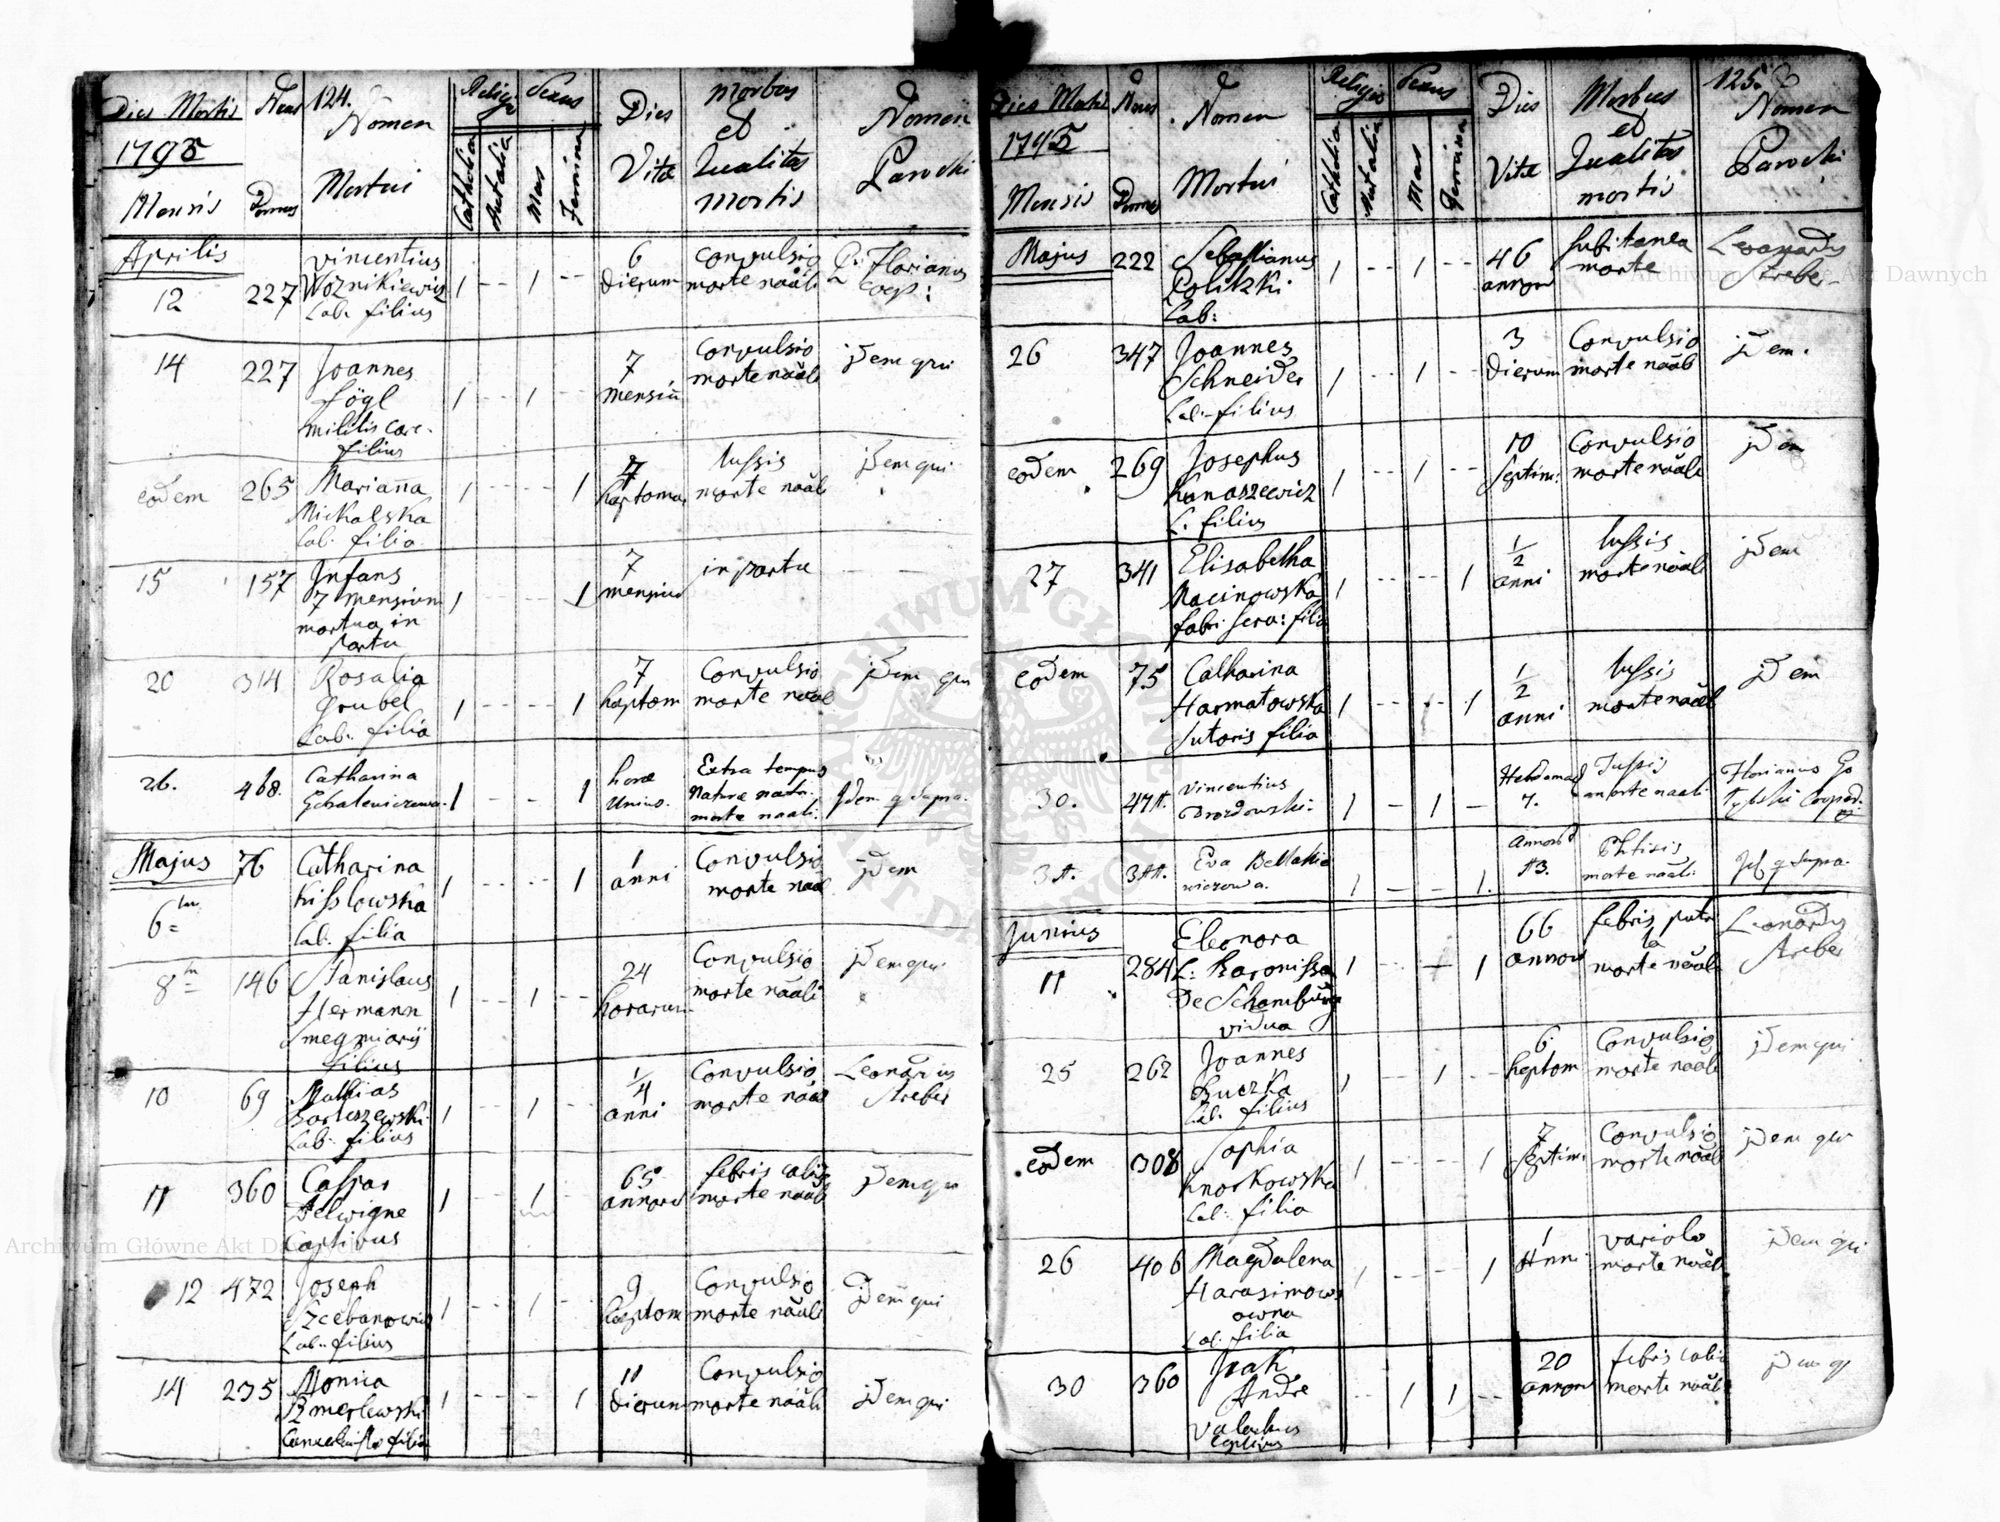 Dies Mortis
1795
Mensis
Nrus
Domus
124.
Nomen
Mortui
Religio
Catholica
Autalia
Sexus
Mas
Femina
Dies
Vitæ
Morbus
et
Qualitas
mortis
Nomen
Parochi
Aprilis
12
227
Vincentius
Woznikiewicz
Lab. filius
1 -- 1 --
6
dierum
Convulsio
morte nãali
P: Florianus
Coop:
14
227
Joannes
Fögl
militis
filius
1 -- 1 --
7
mensiũ
Convulsio
morte nãali
jdem qui
eodem
265
Mariaña
Michalska
Lab. filia
1 1
7
heptoma
tussis
morte nãali
jdem qui
15
157
Infans
7 mensium
mortua in
partu
1 1
7
mensium
in partu
20
314
Rosalia
Grubel
Lab. filia
1 1
7
heptom
Convulsio
morte nãal
jdem qui
26.
468.
Catharina
1 - - 1
horæ
unius.
Extra tempus
naturæ
morte naali.
Jdem q supra.
Majus
6 =
76
Catharina
Kisslowska
Lab. filia
1 1
1
anni
Convulsio
morte nãal
jdem
8
146
Stanislaus
Hermann
Smegmiarij
filius
1 -- 1 --
24
horarum
Convulsio
morte nãali
jdem qui
10
69
Mathias
Bartoszewski
Lab. filius
1 -- 1 -
1/4
anni
Convulsio
morte nãal
Leonardus
Areber
11
360
Caspar
Delwigne
Captivus
1 1
65
annorũ
febris calid
morte nãali
jdem qui
12
472
Joseph
Szcebanowicz
Lab. filius
1 -- 1 -
9
heptom
Convulsio
morte nãali
jdem qui
14
235
Monica
filia
1 1
11
dierum
Convulsio
morte nãali
jdem qui
Dies Mortis
1795
Mensis
Nrus
Domus
Nomen
Mortui
Religio
Catholica
Autalia
Sexus
Mas
Femina
Dies
Vitæ
Morbus
et
Qualitas
mortis
125.
Nomen
Parochi
Majus
222
Sebastianus
Politzki
Lab:
1 -- 1 --
46
annorũ
subitanea
morte
Leonardus
Areber
26
347
Joannes
Schneider
Lab. filius
1 -- 1 --
3
dierum
Convulsio
morte nãali
jdem.
eodem
269
Josephus
Kanaszewicz
L. filius
1 -- 1 --
10
septim:
Convulsio
morte nãali
jdem
27
341
Elisabetha
Macinowska
fabri sera: filia
1 1
1/2
anni
tussis
morte nãali
jdem
eodem
75
Catharina
Harmatowska
sutoris filia
1 1
1/2
anni
tussis
morte nãali
jdem
30.
Vincentius
Drozdowski.
1 - 1 -
Hebdomad
7.
Tussis
morte naali
Florianus
Eva
1 - - 1.
Annorũ
Phtisis
morte naali.
q supra.
Junius
11
284
Eleonora
L: Baronissa
de Schamburg
vidua
1 1
66
annorũ
febris putri
da
morte nãali
Leonardus
Areber
25
262
Joannes
Buczka
Lab. filius
1 1 --
6
heptom
Convulsio
morte nãali
jdem qui
eodem
308
Sophia
Knorkowska
Lab. filia
1 1
7
septim:
Convulsio
morte nãali
jdem qui
26
406
Magdalena
Harasimow
owna
Lab. filia
1 1
1
Anni
variola
morte nãali
jdem qui
30
360
Isak
Andre
Valachus
Captivus
-- 1 1 --
20
annorũ
febris calid
morte nãali
jdem q
Archiwum Główne Akt Dawnych
Archiwum Główne Akt Dawnych
ARCHIWUM GŁÓWNE AKT DAWNYCH